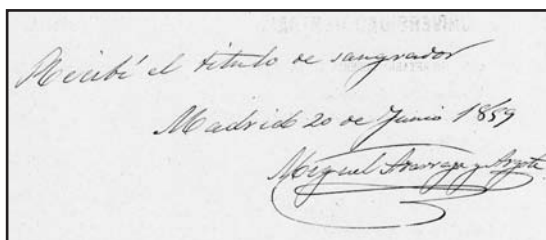 Recibí el titulo de sangrador
Madrid 20 de Junio 1859
Miguel y Argote